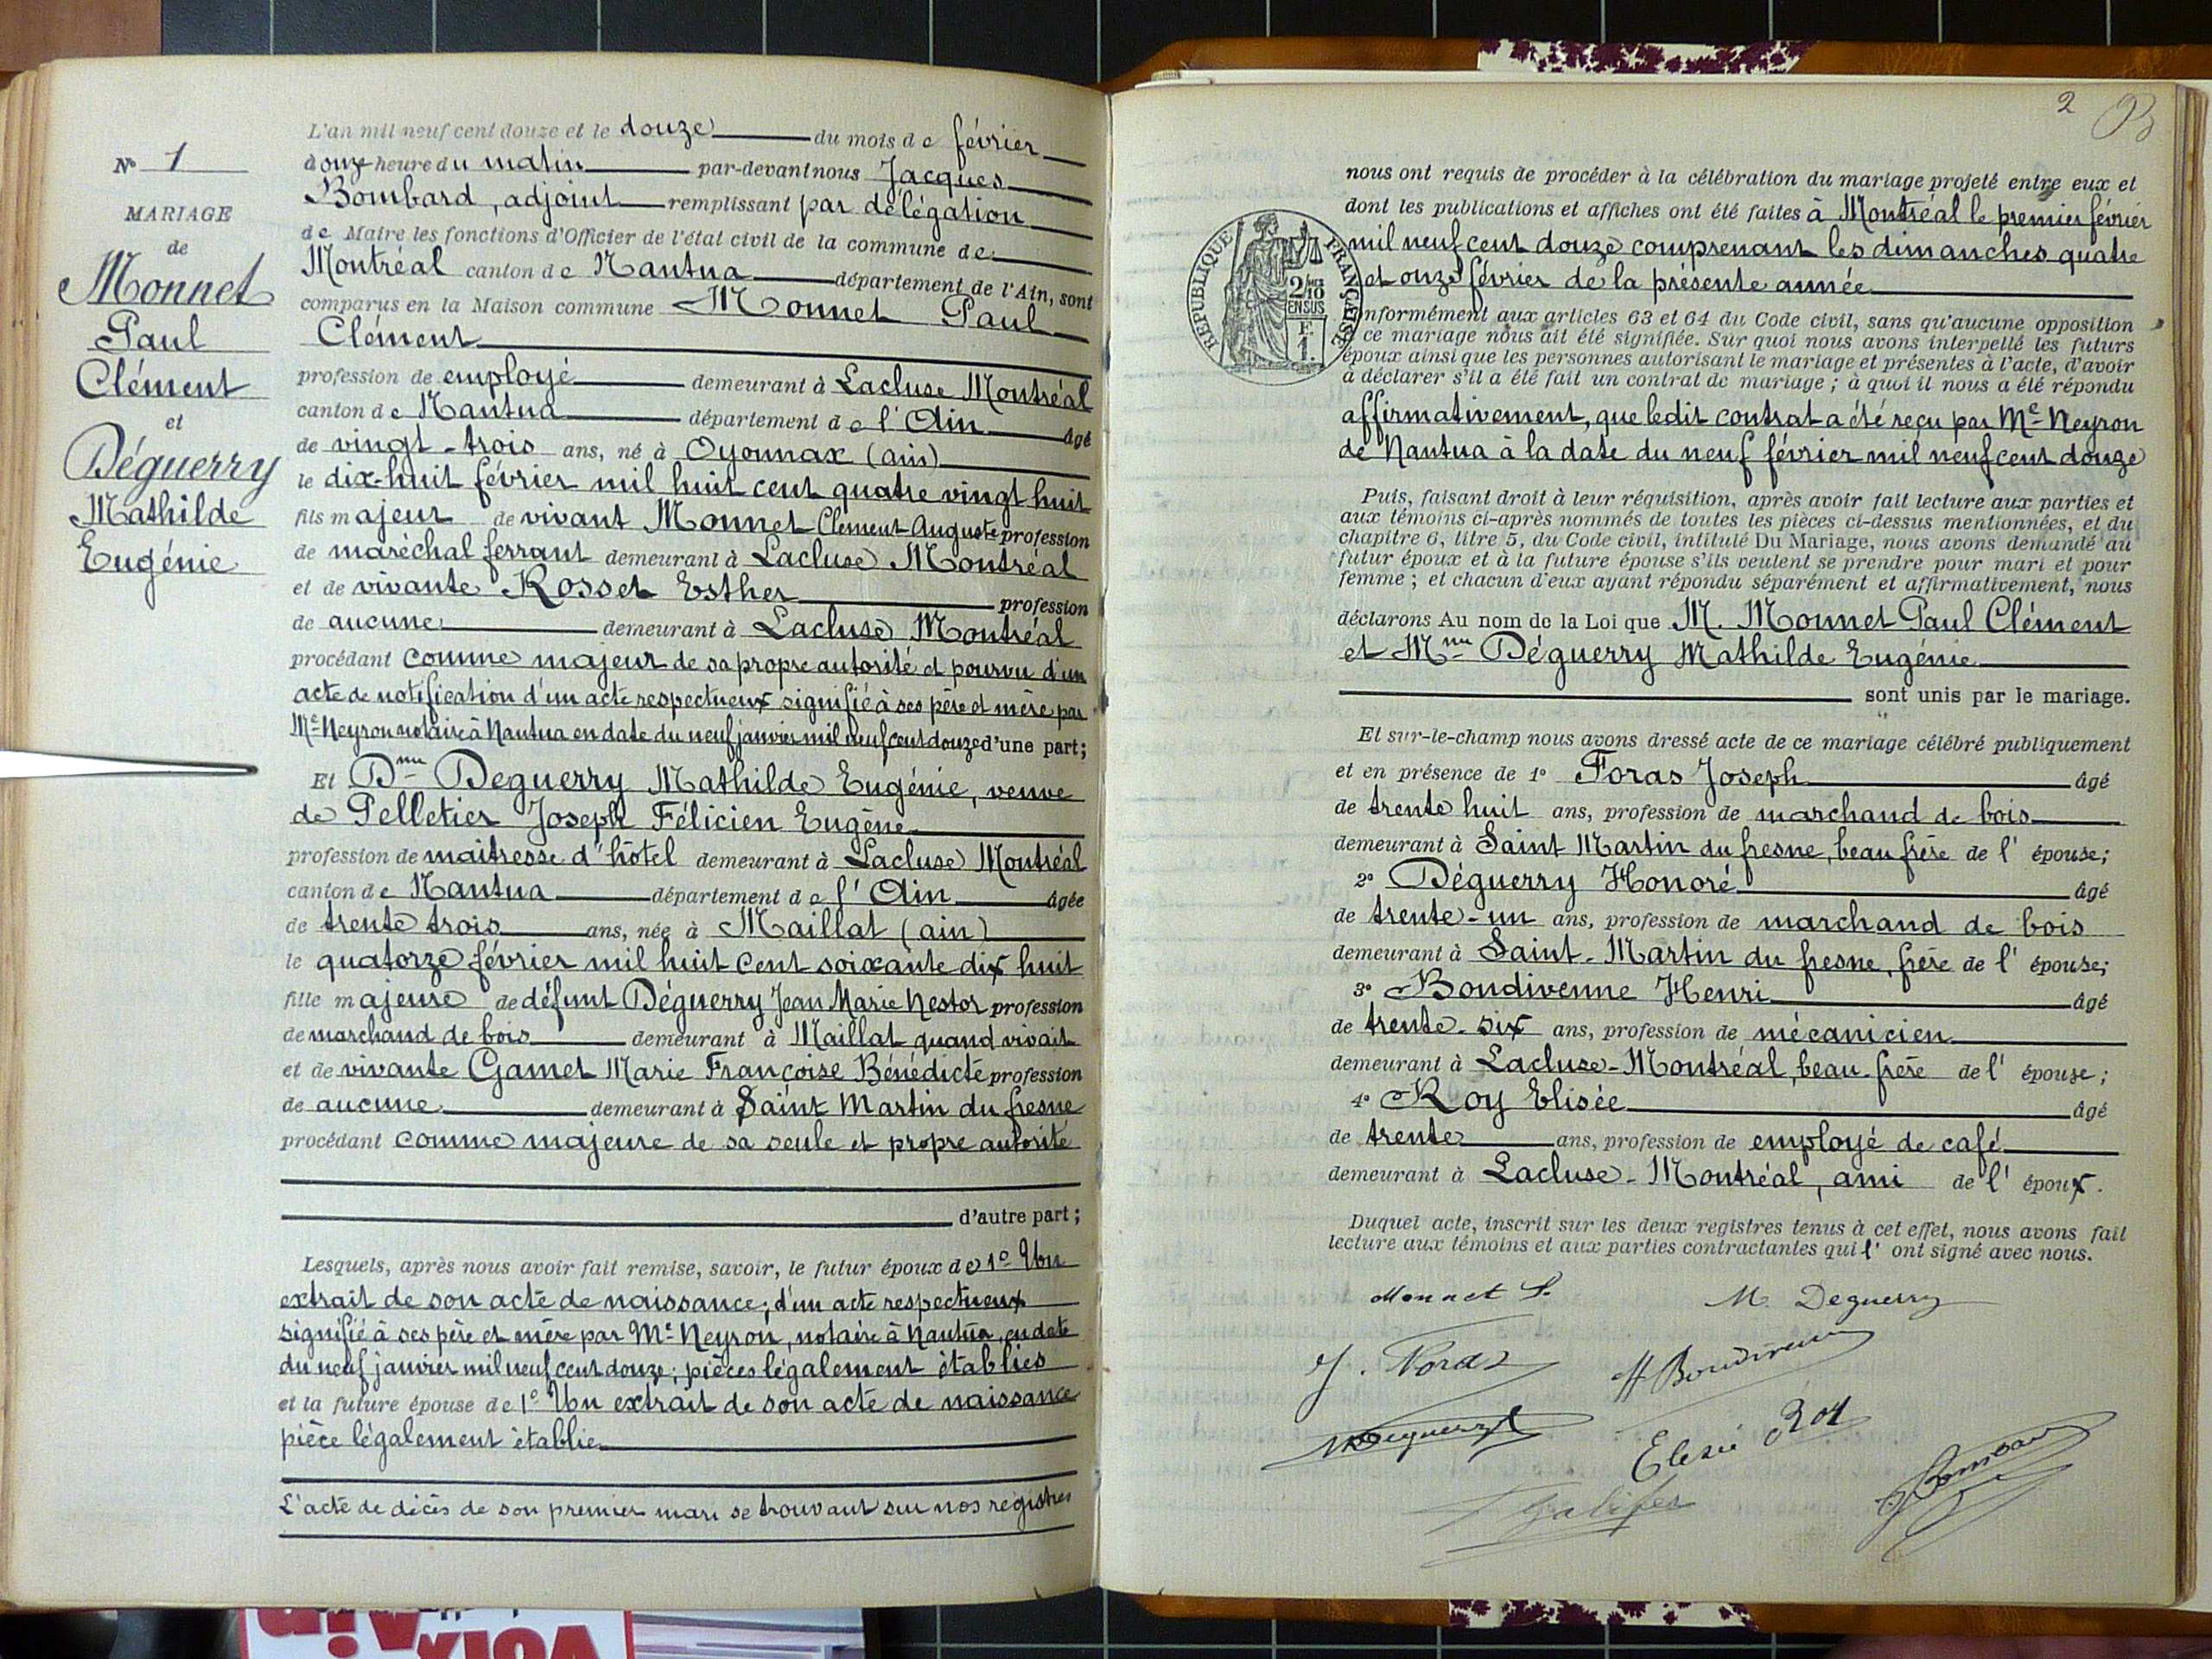 N° 1
MARIAGE
de
Monnet
Paul
Clément
et
Déguerry
Mathilde
Eugénie
L'an mil neuf cent douze et le douze du mois de février
à onze heure du matin par-devant nous Jacques
Bombard, adjoint remplissant par délégation
de Maire les fonctions d'Officier de l'état civil de la commune de
Montréal canton de Nantua département de l'Ain, sont
comparus en la Maison commune Monnet Paul
Clément
profession de employé demeurant à Lacluse Montréal
canton de Nantua département de l'Ain âgé
de vingt-trois ans, né à Oyonnax (ain)
le dix-huit février mil huit cent quatre vingt huit
fils majeur de vivant Monnet Clement Auguste profession
de maréchal ferrant demeurant à Lacluse Montréal
et de vivante Rosset Esther profession
de aucune demeurant à Lacluse Montréal
procédant comme majeur de sa propre autorité et pourvu d'un
acte de notification d'un acte respectueux signifié à ses père et mère par
Me Neyron notaire à Nantua en date du neuf janvier mil neuf cent douze d'une part;
Et Dme Deguerry Mathilde Eugénie, veuve
de Pelletier Joseph Félicien Eugène
profession de maitresse d'hôtel demeurant à Lacluse Montréal
canton de Nantua département de l'Ain âgée
de trente trois ans, née à Maillat (ain)
le quatorze février mil huit cent soixante dix huit
fille majeure de défunt Déguerry Jean Marie Nestor profession
de marchand de bois demeurant à Maillat quand vivait
et de vivante Gamet Marie Françoise Bénédicte profession
de aucune demeurant à Saint Martin du fresne
procédant comme majeure de sa seule et propre autorité
d'autre part;
Lesquels, après nous avoir fait remise, savoir, le futur époux de 1° Un
extrait de son acte de naissance; d'un acte respectueux
signifié à ses père et mère par Me Neyron, notaire à Nantua, en date
du neuf janvier mil neuf cent douze; pièces légalement établies
et la future épouse de 1° Un extrait de son acte de naissance
pièce légalement établie
L'acte de décès de son premier mari se trouvant sur nos registres
2
nous ont requis de procéder à la célébration du mariage projeté entre eux et
dont les publications et affiches ont été faites à Montréal le premier février
mil neuf cent douze comprenant les dimanches quatre
et onze février de la présente année
RÉPUBLIQUE FRANÇAISE
2/10
EN SUS
F.
1.
onformément aux articles 63 et 64 du Code civil, sans qu'aucune opposition
à ce mariage nous ait été signifiée. Sur quoi nous avons interpellé les futurs
époux ainsi que les personnes autorisant le mariage et présentes à l'acte, d'avoir
à déclarer s'il a été fait un contrat de mariage; à quoi il nous a été répondu
affirmativement, que ledit contrat a été reçu par Me Neyron
de Nantua à la date du neuf février mil neuf cent douze
Puis, faisant droit à leur réquisition, après avoir fait lecture aux parties et
aux témoins ci-après nommés de toutes les pièces ci-dessus mentionnées, et du
chapitre 6, titre 5, du Code civil, intitulé Du Mariage, nous avons demandé au
futur époux et à la future épouse s'ils veulent se prendre pour mari et pour
femme; et chacun d'eux ayant répondu séparément et affirmativement, nous
déclarons Au nom de la Loi que M. Monnet Paul Clément
et Mme Déguerry Mathilde Eugénie
sont unis par le mariage.
Et sur-le-champ nous avons dressé acte de ce mariage célébré publiquement
et en présence de 1° Foras Joseph âgé
de trente huit ans, profession de marchand de bois
demeurant à Saint Martin du fresne, beau frère de l'épouse;
2° Déguerry Honoré âgé
de trente-un ans, profession de marchand de bois
demeurant à Saint-Martin du fresne, frère de l'épouse;
3° Bondivenne Henri âgé
de trente-six ans, profession de mécanicien
demeurant à Lacluse-Montréal, beau-frère de l'épouse;
4° Roy Elisée âgé
de trente ans, profession de employé de café
demeurant à Lacluse-Montréal, ami de l'époux.
Duquel acte, inscrit sur les deux registres tenus à cet effet, nous avons fait
lecture aux témoins et aux parties contractantes qui l'ont signé avec nous.
Monnet P. M. Deguerry
J. Foras H Bondivenne
Deguerry Elisée Roy